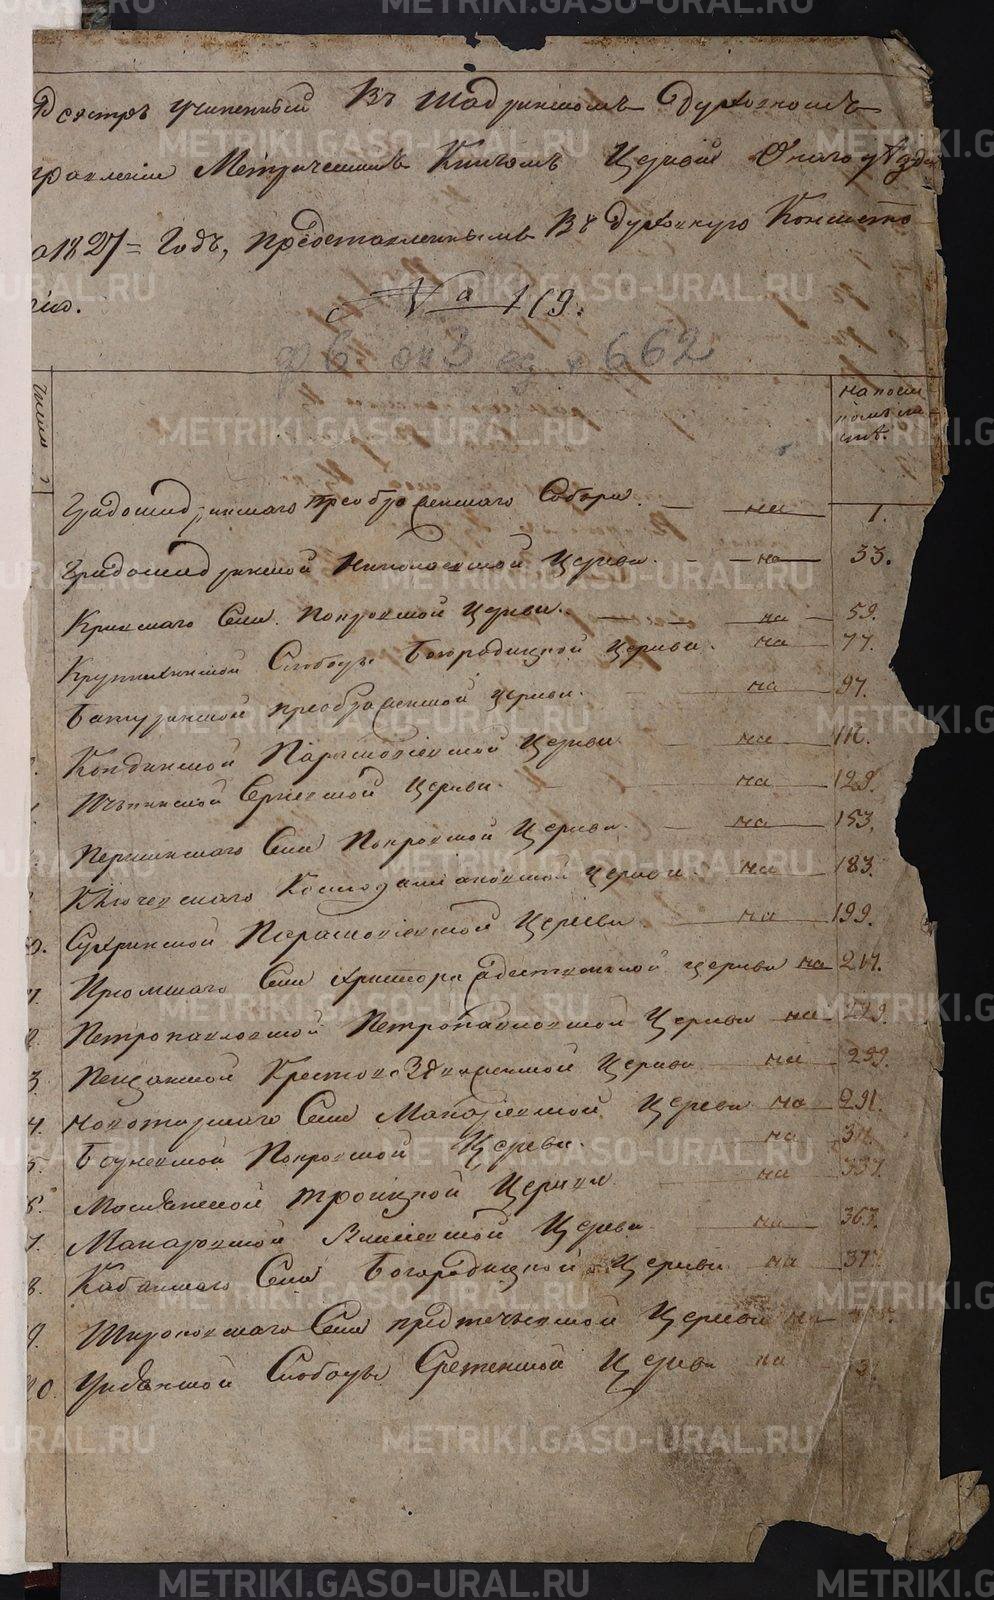 Реэстръ учиненный Въ Шадринскомъ Духовномъ
правленіи Метрическимъ Книгамъ Церквей Онаго уѣзда
за 1827= Годъ, представленнымъ Въ Духовную Консисто
рію.
№ 119.
ф 6 оп 3 ед х 662
число
на коемъ листѣ.
Градошадринскаго преображенскаго Собора. — на — 1.
Градошадринской Николаевской Церкви. — на — 33.
Кривскаго Села Покровской Церкви. — на — 59.
Крутихинской Слободы Богородицкой Церкви. на — 77.
Батуринской преображенской церкви. — на — 97.
Кондинской Параскевіевской Церкви — на — 111.
Ичкинской Сргіевской Церкви. — на — 129.
Першинскаго Села Покровской Церкви. — на — 153.
Ключевскаго Космодаміановской церкви — на — 183.
Сухринской Параскевіевской Церкви — на — 199.
Иромскаго Села Христорождественской церкви на — 217.
12. Петропавловской Петропавловской Церкви на — 229.
3. Пещанской Крестовоздвиженской Церкви на — 259.
4. Новоторжскаго Села Макаріевской Церкви на — 291.
5. Боровской Покровской Церкви. на — 311.
6. Мостовской троицкой Церкви — на — 337.
7. Макарьевской Церкви — на — 367.
8. Кабанскаго Села Богородицкой Церкви на — 377.
9. Широковскаго Села предтечевской Церкви на —
20. Слободы Сретенской Церкви на —
METRIKI.GASO-URAL.RU